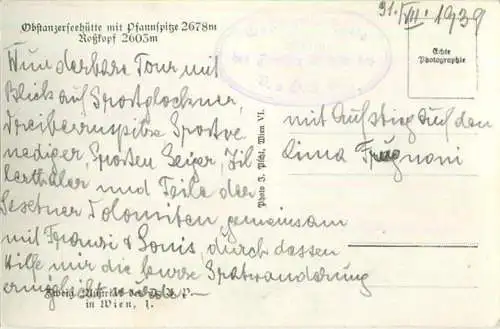 31. VII. 1939
Obstanzerseehütte mit Pfannspitze 2678m
Roßkopf 2603m
Echte
Photographie
Wunderbare Tour mit
Blick auf Grossglockner,
Dreiherrnspitze Grossve
nediger, Grossen Geiger, Zil
lerthaler und Teile der
Sextner Dolomiten gemeinsam
mit & Louis, durch dessen
Hilfe mir die kurze Gratwanderung
ermöglicht wurde.
mit Aufstieg auf den
Cima Frugnoni
Photo J. Wien VI.
Zweig Austria des D. A. V.
in Wien, I.